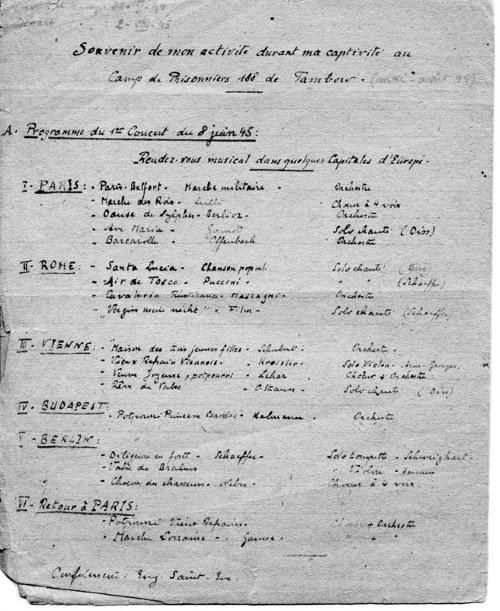 2-VIII-45
Souvenir de mon activité durant ma captivité au
Camp de Prisonniers 188 de Tambow.
A. Programme du 1er Concert du 8 juin 45:
Rendez-vous musical dans quelques Capitales d'Europe.
I - PARIS: - Paris-Belfort - Marche militaire - Orchestre
- Marche des Rois - Lulli Chœur à 4 voix
- Danse de Sylphes - Berlioz - Orchestre
- Ave Maria - Gounod Solo chanté (Diss)
- Barcarolle - Offenbach Orchestre
II - ROME: - Santa Lucia - Chanson popul. Solo chanté
- Air de Tosca - Puccini - " " (Schaeffer)
- Cavaleria Rusticana - Mascagni - Orchestre
- "Vergiss mein nicht" - Film - Solo chanté (Schaeffer)
III - VIENNE: - Maison des trois jeunes filles - Schubert - Orchestre -
- Vieux Refrain Viennois - Kreisler - Solo Violon -
- Veuve Joyeuse potpourri - Lehar Chœur + Orchestre -
- Rêve de Valse - O. Straus - Solo chanté (Diss)
IV - BUDAPEST: - Potpourri Princesse Csardas - Kalmann - Orchestre
V - BERLIN: - en forêt - Schaeffer - Solo trompette - Schweighart -
- Valse de Brahms
- Chœur des chasseurs - Weber - Chœur à 4 voix
VI - Retour à PARIS:
- Potpourri Vieux Refrains - + Orchestre
- Marche Lorraine - Ganne - " "
Conférencier: Eug. Saint-